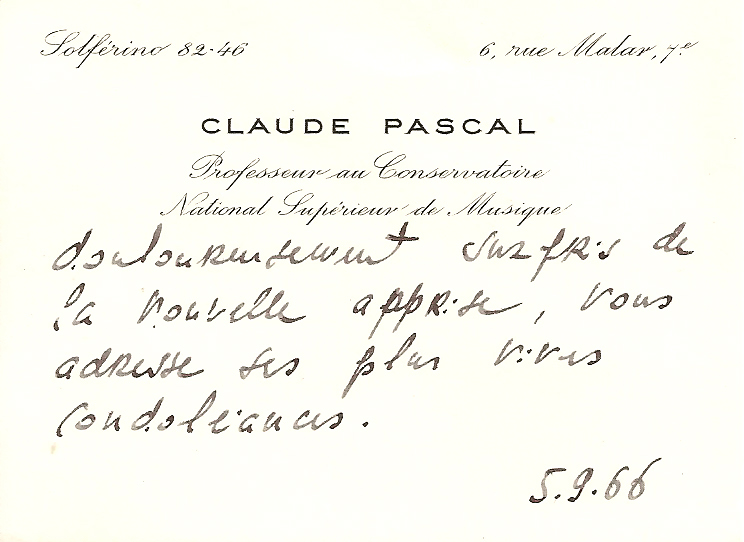 Solférino 82-46
6, rue Malar, 7e
CLAUDE PASCAL
Professeur au Conservatoire
National Supérieur de Musique
douloureusement surpris de
la nouvelle apprise, vous
adresse ses plus vives
condoléances.
5.9.66